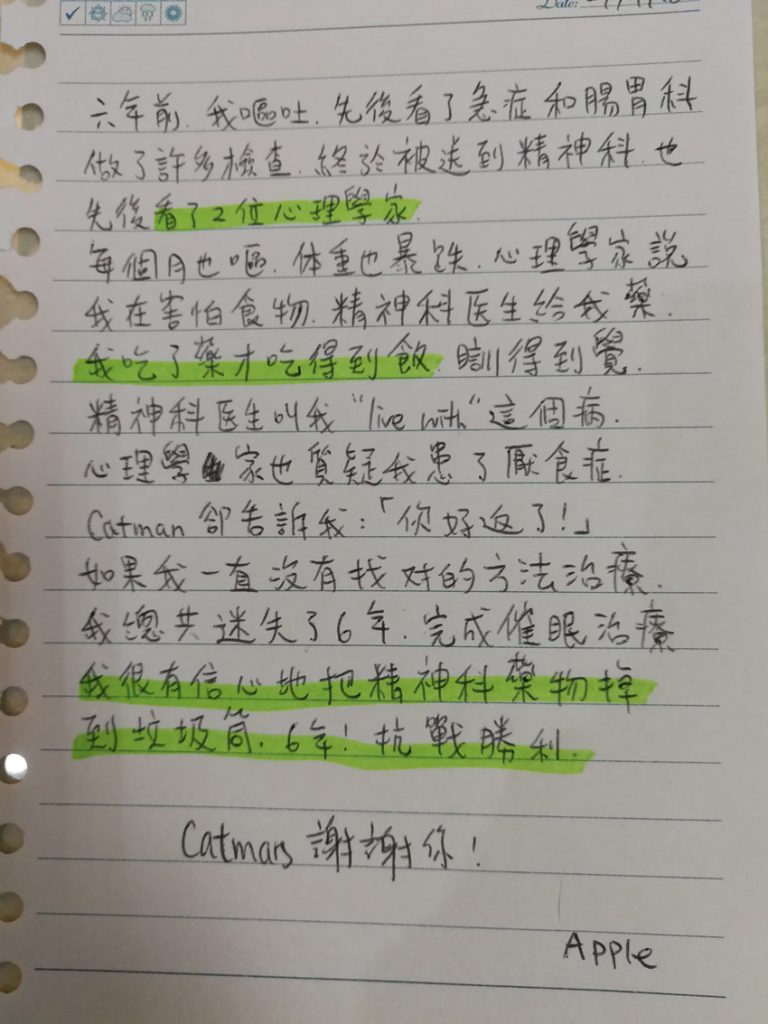 Date:
六年前. 我嘔吐. 先後看了急症和腸胃科
做了許多檢查. 終於被送到精神科. 也
先後看了2位心理學家.
每個月也嘔. 体重也暴跌. 心理學家說
我在害怕食物. 精神科医生給我藥.
我吃了藥才吃得到飯. 瞓得到覺.
精神科医生叫我 "live with" 這個病.
心理學家也質疑我患了厭食症.
Catman 卻告訴我:「你好返了!」
如果我一直沒有找对的方法治療.
我總共迷失了6年. 完成催眠治療
我很有信心地把精神科藥物掉
到垃圾筒. 6年! 抗戰勝利.
Catmars 謝謝你!
Apple